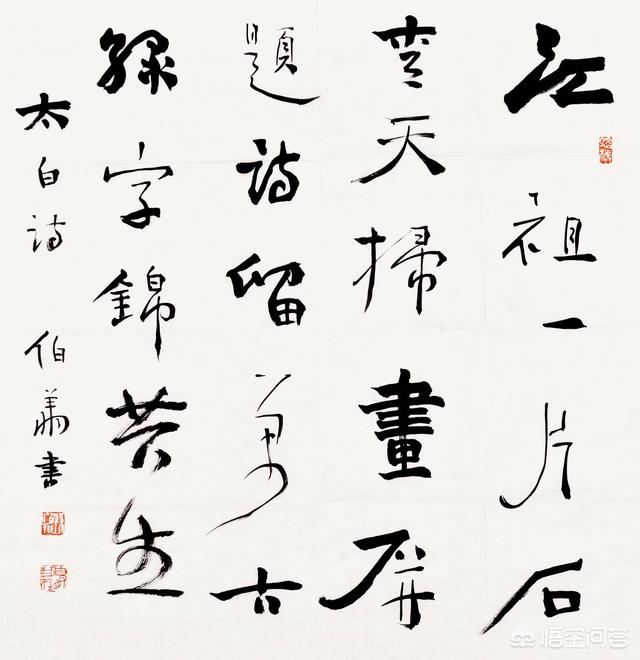 江祖一片石
青天掃畫屏
題詩留萬古
綠字錦苔生
太白詩 伯 書
悟空问答